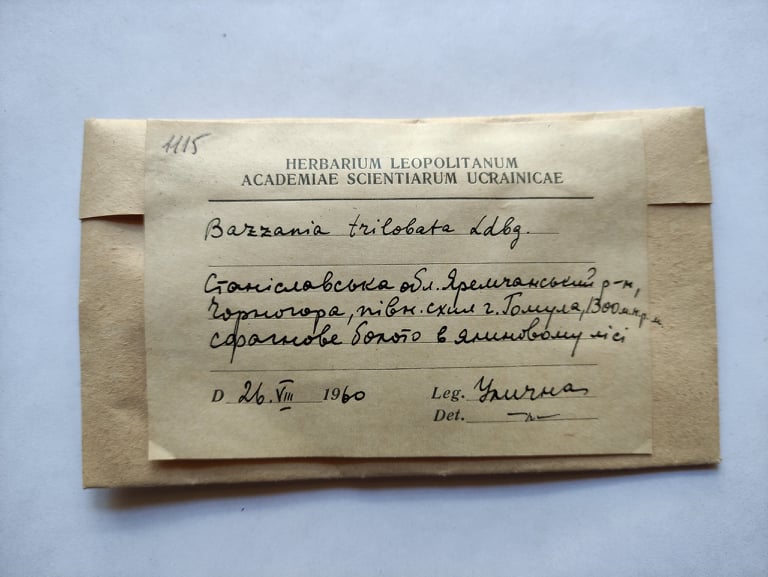 1115
HERBARIUM LEOPOLITANUM
ACADEMIAE SCIENTIARUM UCRAINICAE
Bazzania trilobata Ldbg.
Станіславська обл. Яремчанський р-н,
Чорногора, півн. схил г. Гомула, 1300 м н.р.м.
сфагнове болото в ялиновому лісі
D 26.VIII 1960 Leg. Улична
Det. —„—